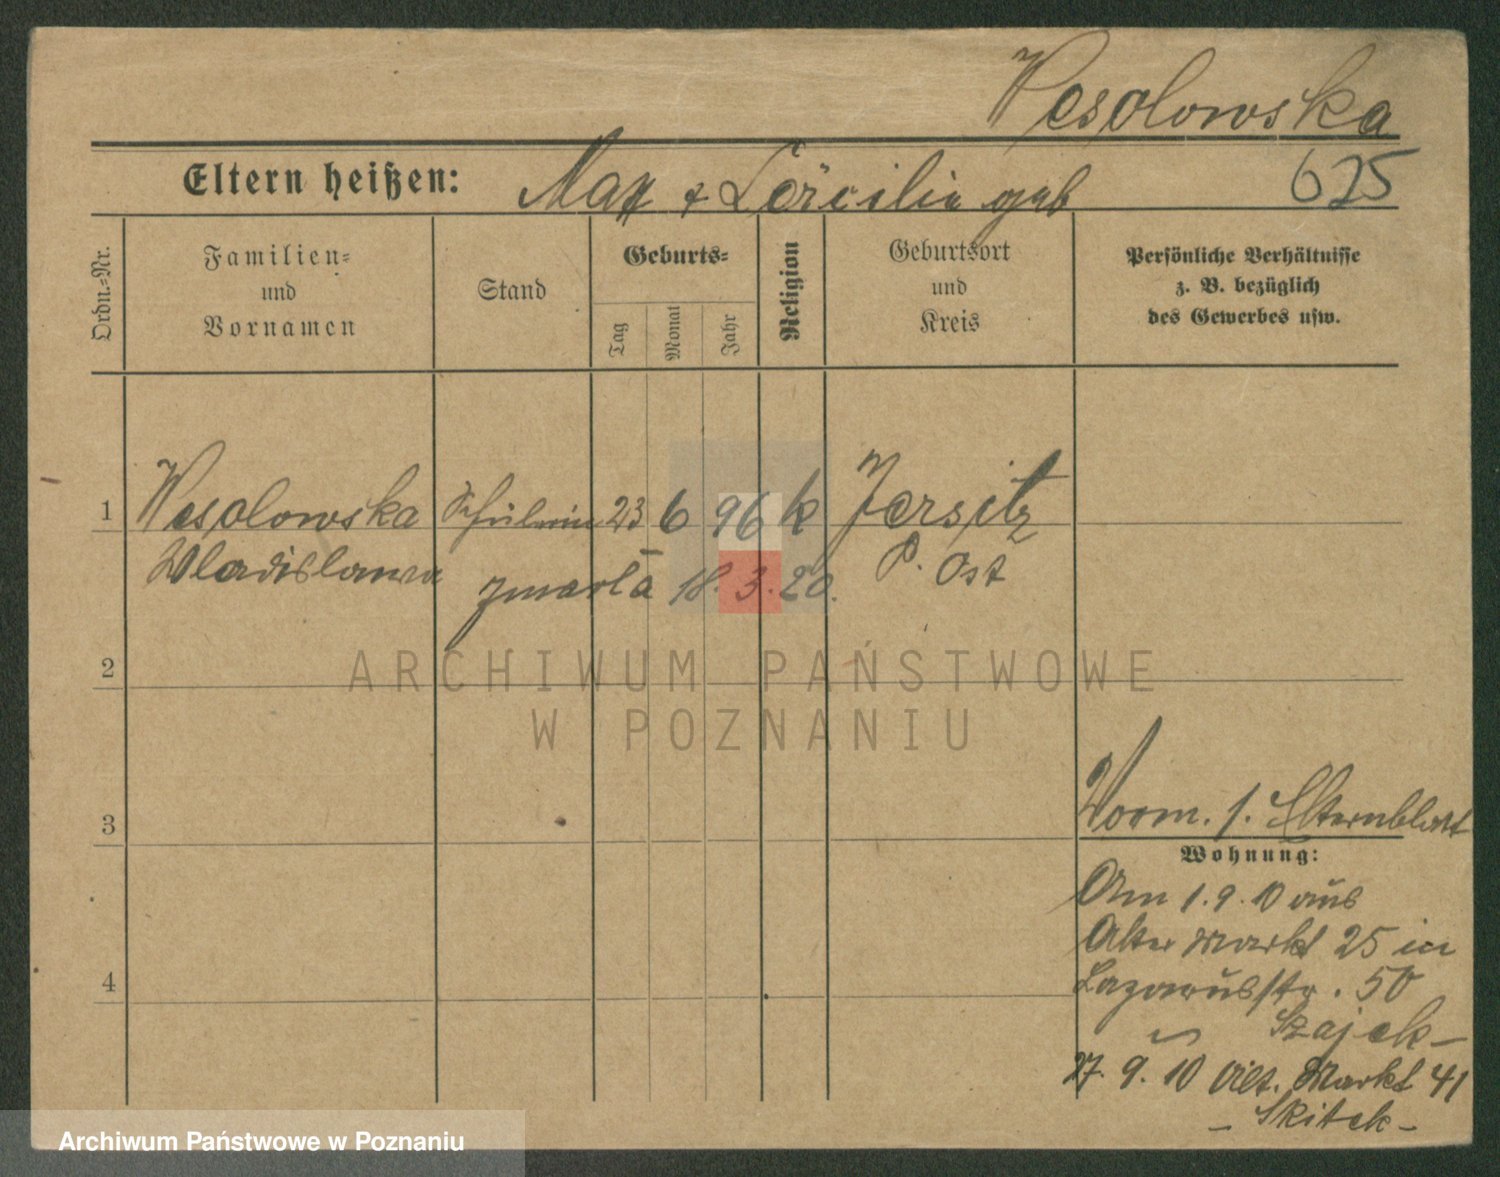 Wesolowska
Eltern heißen: Max & Cäcilie geb
625
Ordn.=Nr.
Familien=
und
Vornamen
Stand
Geburts=
Tag
Monat
Jahr
Religion
Geburtsort
und
Kreis
Persönliche Verhältnisse
z. B. bezüglich
des Gewerbes usw.
1 Wesolowska Schülerin 23 6 96 k Jersitz
Wladislawa P. Ost
zmarła 18.3.20.
2
ARCHIWUM PAŃSTWOWE
W POZNANIU
3
Vorm. s. Elternblatt
Wohnung:
Am 1.9.10 aus
Alter Markt 25 in
4
Lazarusstr. 50
Szajek-
27.9.10 Alt. Markt 41
- Skitek -
Archiwum Państwowe w Poznaniu